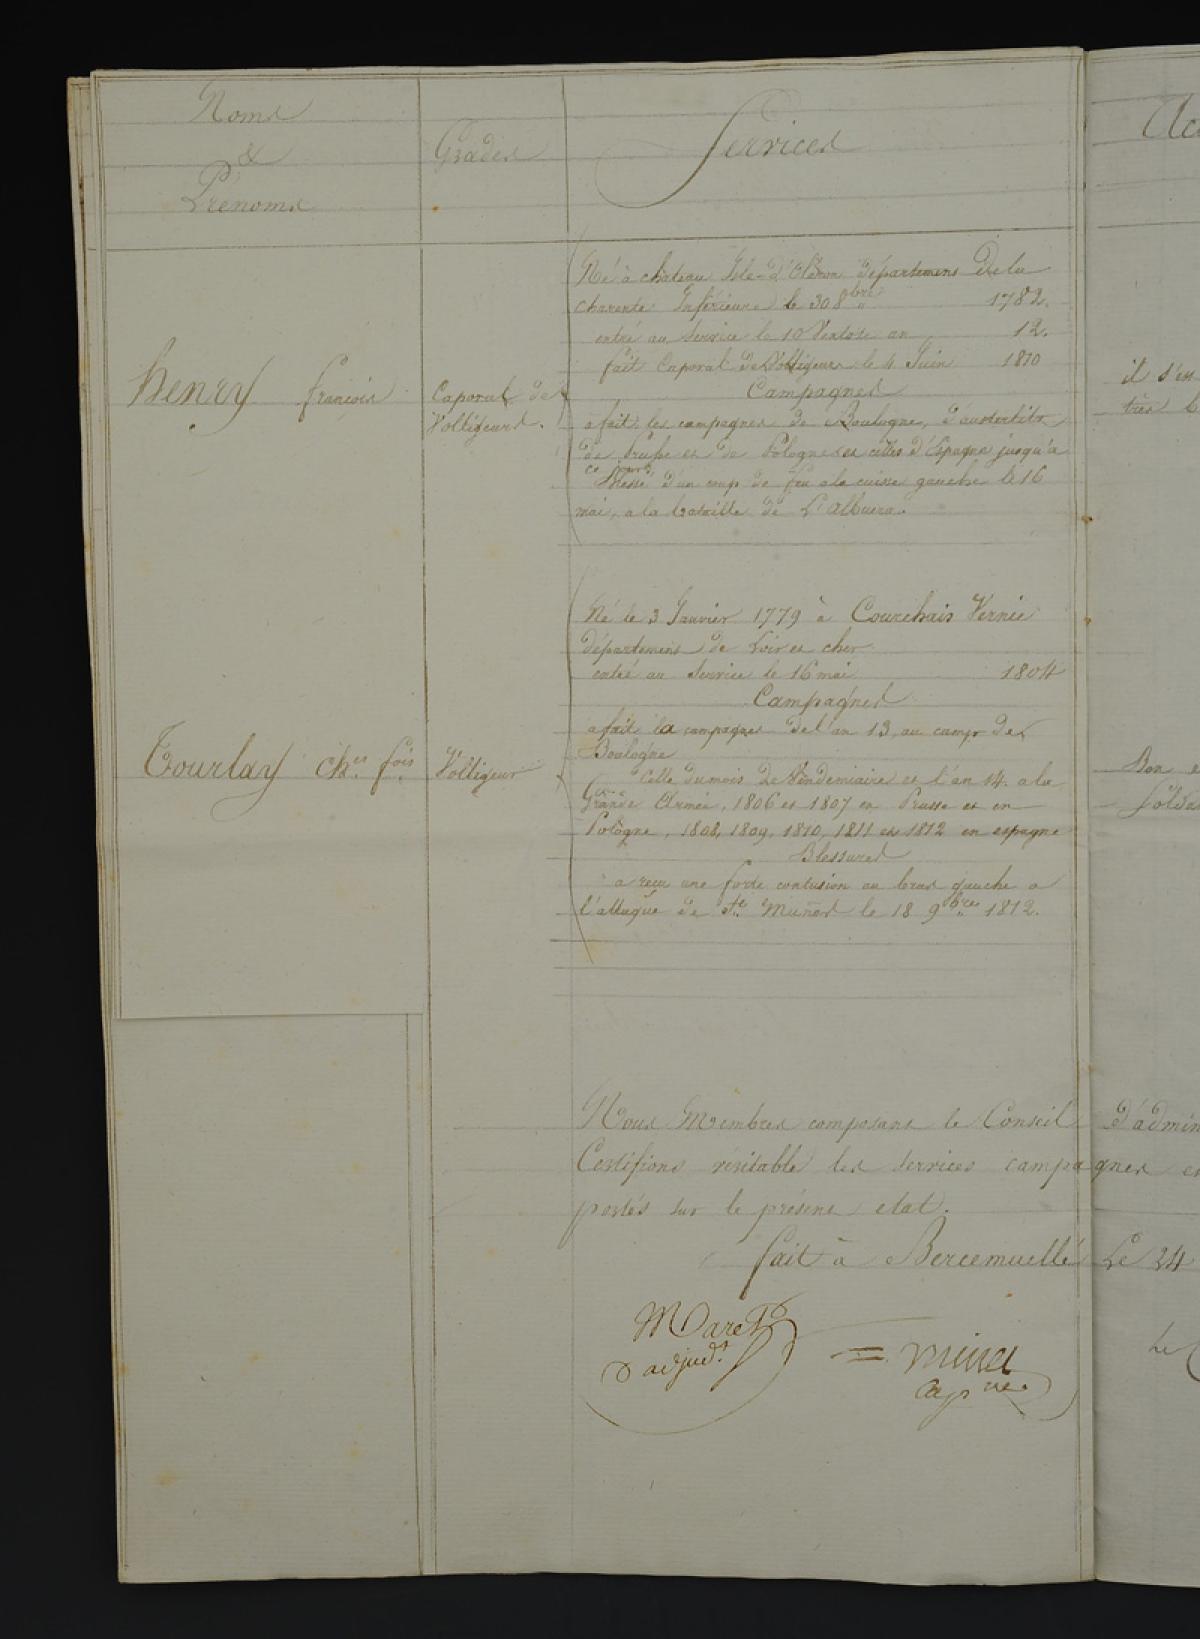 Noms
&
Prénoms
Grades
Services
Né à château Isle-d'Oléron département de la
charente Inférieure le 30 8bre 1782.
entré au service le 10 Ventose an 12.
fait Caporal de Voltigeurs le 4 Juin 1810
Campagnes
henry francois
Caporal de
Voltigeurs.
a fait les campagnes de Boulogne, d'austerlitz
de Prusse et de Pologne et celles d'Espagne jusqu'a
ce jour
Blessé d'un coup de feu a la cuisse gauche le 16
mai, a la bataille de L'albuera.
Né le 3 Janvier 1779 à Courchais Vernie
département de Loir et cher
entré au service le 16 mai 1804
Campagnes
a fait la campagnes de l'an 13, au camp de
Boulogne
Tourlay Ch.es fois
Voltigeur
Celle du mois de Vendemiaire et l'an 14. a la
Grande Armée, 1806 et 1807 en Prusse et en
Pologne, 1808, 1809, 1810, 1811 et 1812 en espagne
Blessures
a reçu une forte contusion au bras gauche a
l'attaque de Ste Muños le 18 9bre 1812.
Nous Membres composant le Conseil d'admin
Certifions véritable les services campagnes et
portés sur le présent etat.
fait à Bercemuelle Le 24
Maret
adjudt
Minel
Capne
Ac
il s'est
très b
Bon e
Solda
Le